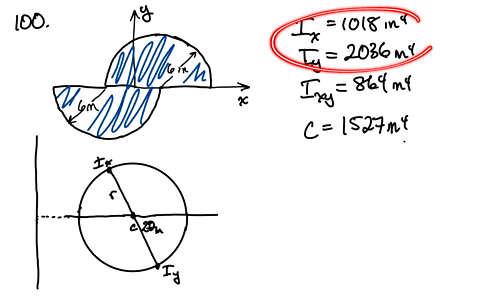 100.
y
6in
x
6in
Ix = 1018 in⁴
Iy = 2036 in⁴
Ixy = 864 in⁴
C = 1527 in⁴
Ix
r
c
Iy